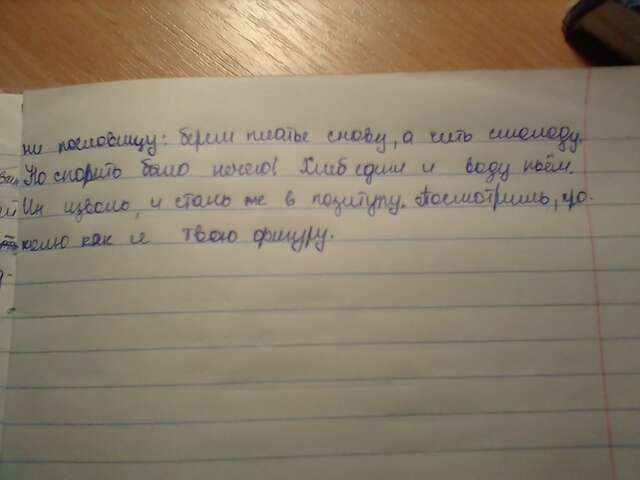 ни пословицу: береги платье снову, а честь смолоду.
Но спорить было нечего! Хлеб едим и воду пьём.
Ин изволь, и стань же в позитуру. Посмотришь, про-
колю как я твою фигуру.